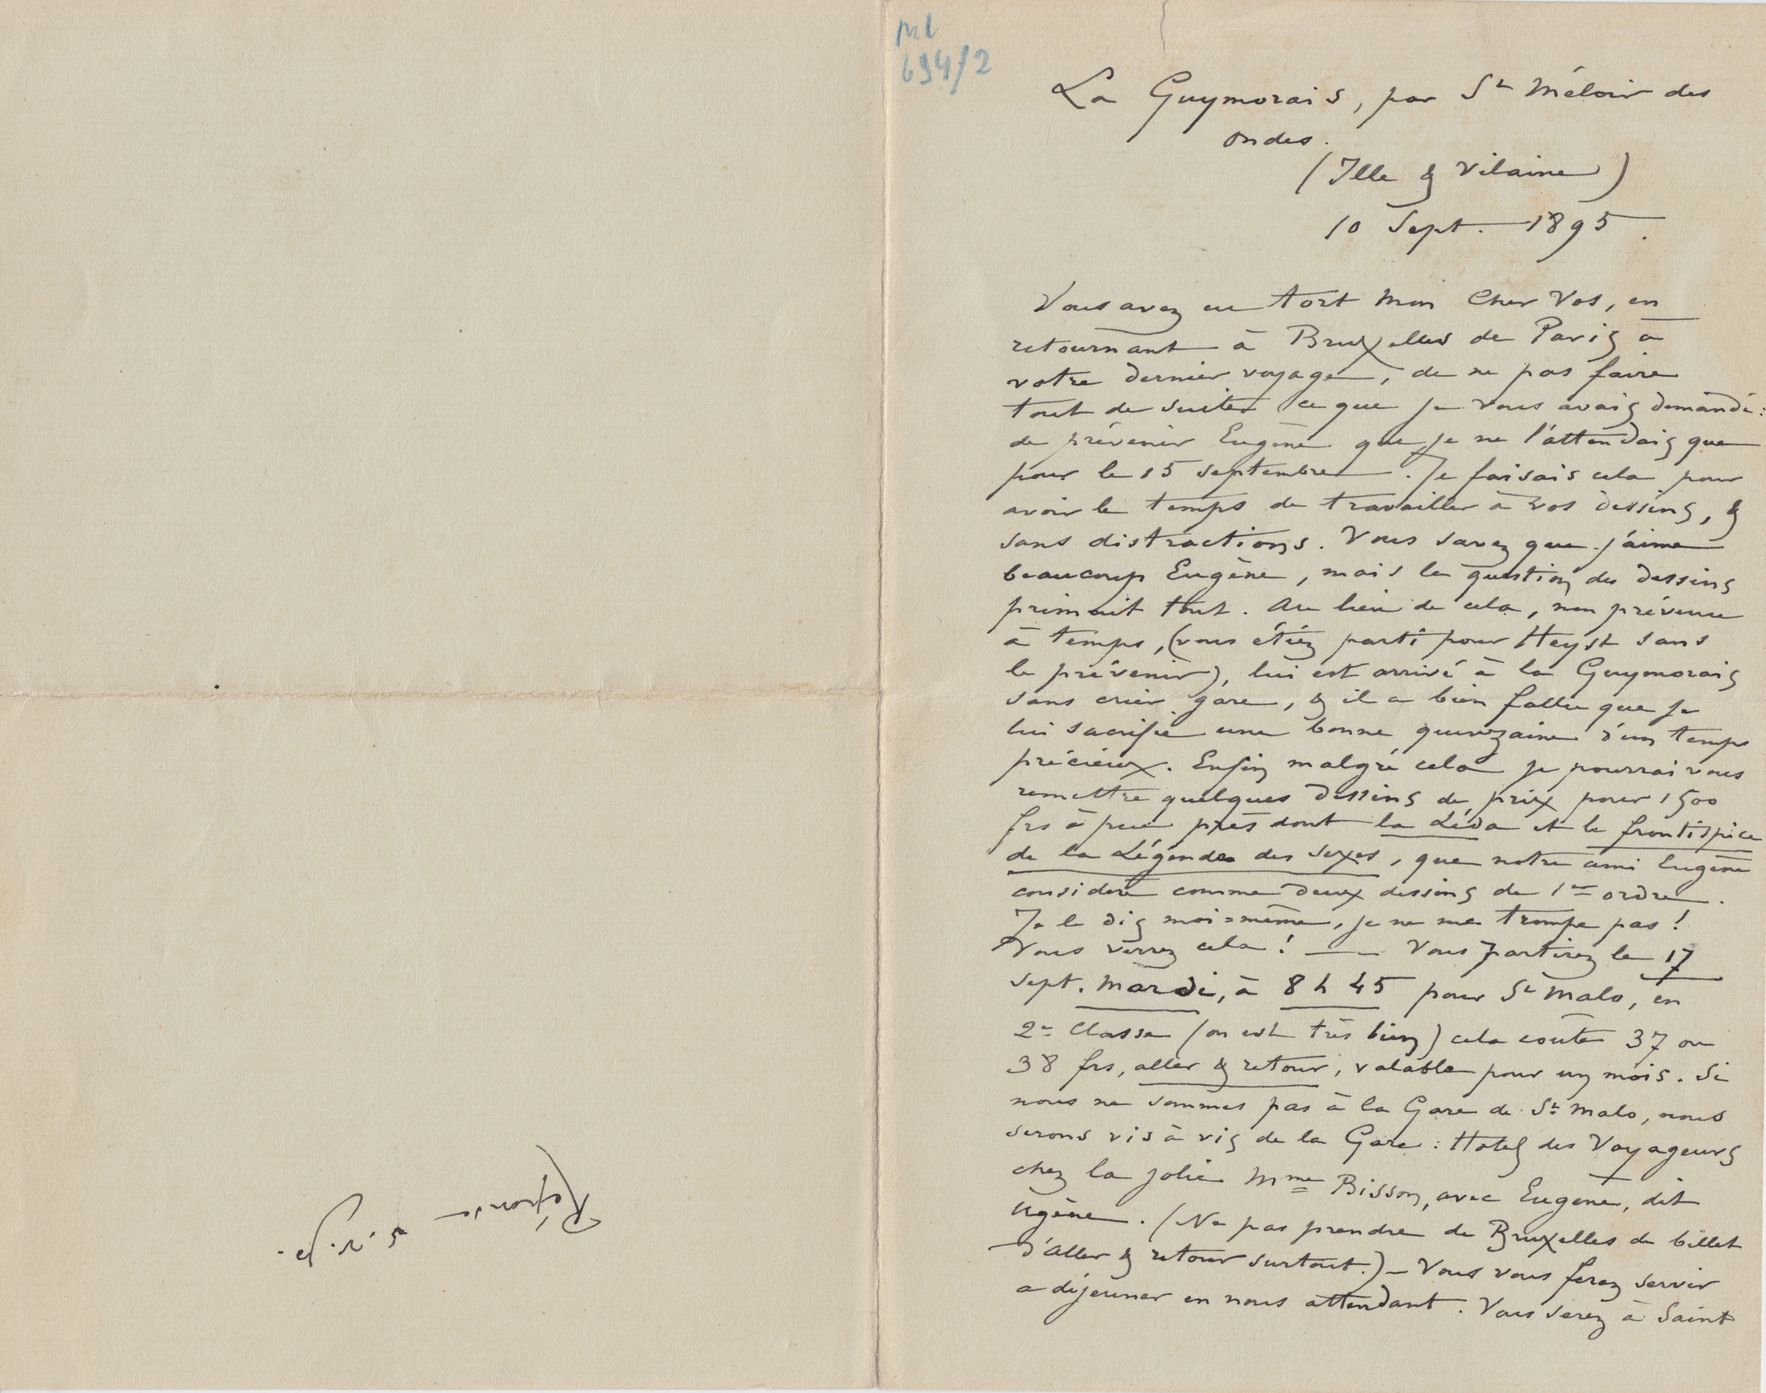 ML
694/2
La Guymorais, par St Méloir des
ondes.
(Ille & Vilaine)
10 Sept. 1895.
Vous avez eu tort mon Cher Vos, en
retournant à Bruxelles de Paris à
votre dernier voyage, de ne pas faire
tout de suite ce que je vous avais demandé :
de prévenir Eugène que je ne l'attendais que
pour le 15 septembre. Je faisais cela pour
avoir le temps de travailler à vos dessins, &
sans distractions. Vous savez que j'aime
beaucoup Eugène, mais la question des dessins
primait tout. Au lieu de cela, non prévenu
à temps, (vous étiez parti pour Heyst sans
le prévenir), lui est arrivé à la Guymorais
sans crier gare, & il a bien fallu que je
lui sacrifie une bonne quinzaine d'un temps
précieux. Enfin malgré cela je pourrai vous
remettre quelques dessins de prix pour 1500
frs à peu près dont la Léda et le frontispice
de la Légende des sexes, que notre ami Eugène
considère comme deux dessins de 1er ordre.
Je le dis moi=même, je ne me trompe pas !
Vous verrez cela ! — Vous partirez le 17
sept. mardi, à 8 h 45 pour St Malo, en
2e Classe (on est très bien) cela coûte 37 ou
38 frs, aller & retour, valable pour un mois. Si
nous ne sommes pas à la Gare de St Malo, nous
serons vis à vis de la Gare : Hotel des Voyageurs
chez la jolie Mme Bisson, avec Eugène, dit
Ugène. (Ne pas prendre de Bruxelles de billet
d'aller & retour surtout.) — Vous vous ferez servir
a déjeuner en nous attendant. Vous serez à Saint
Réponse
s. v. p.